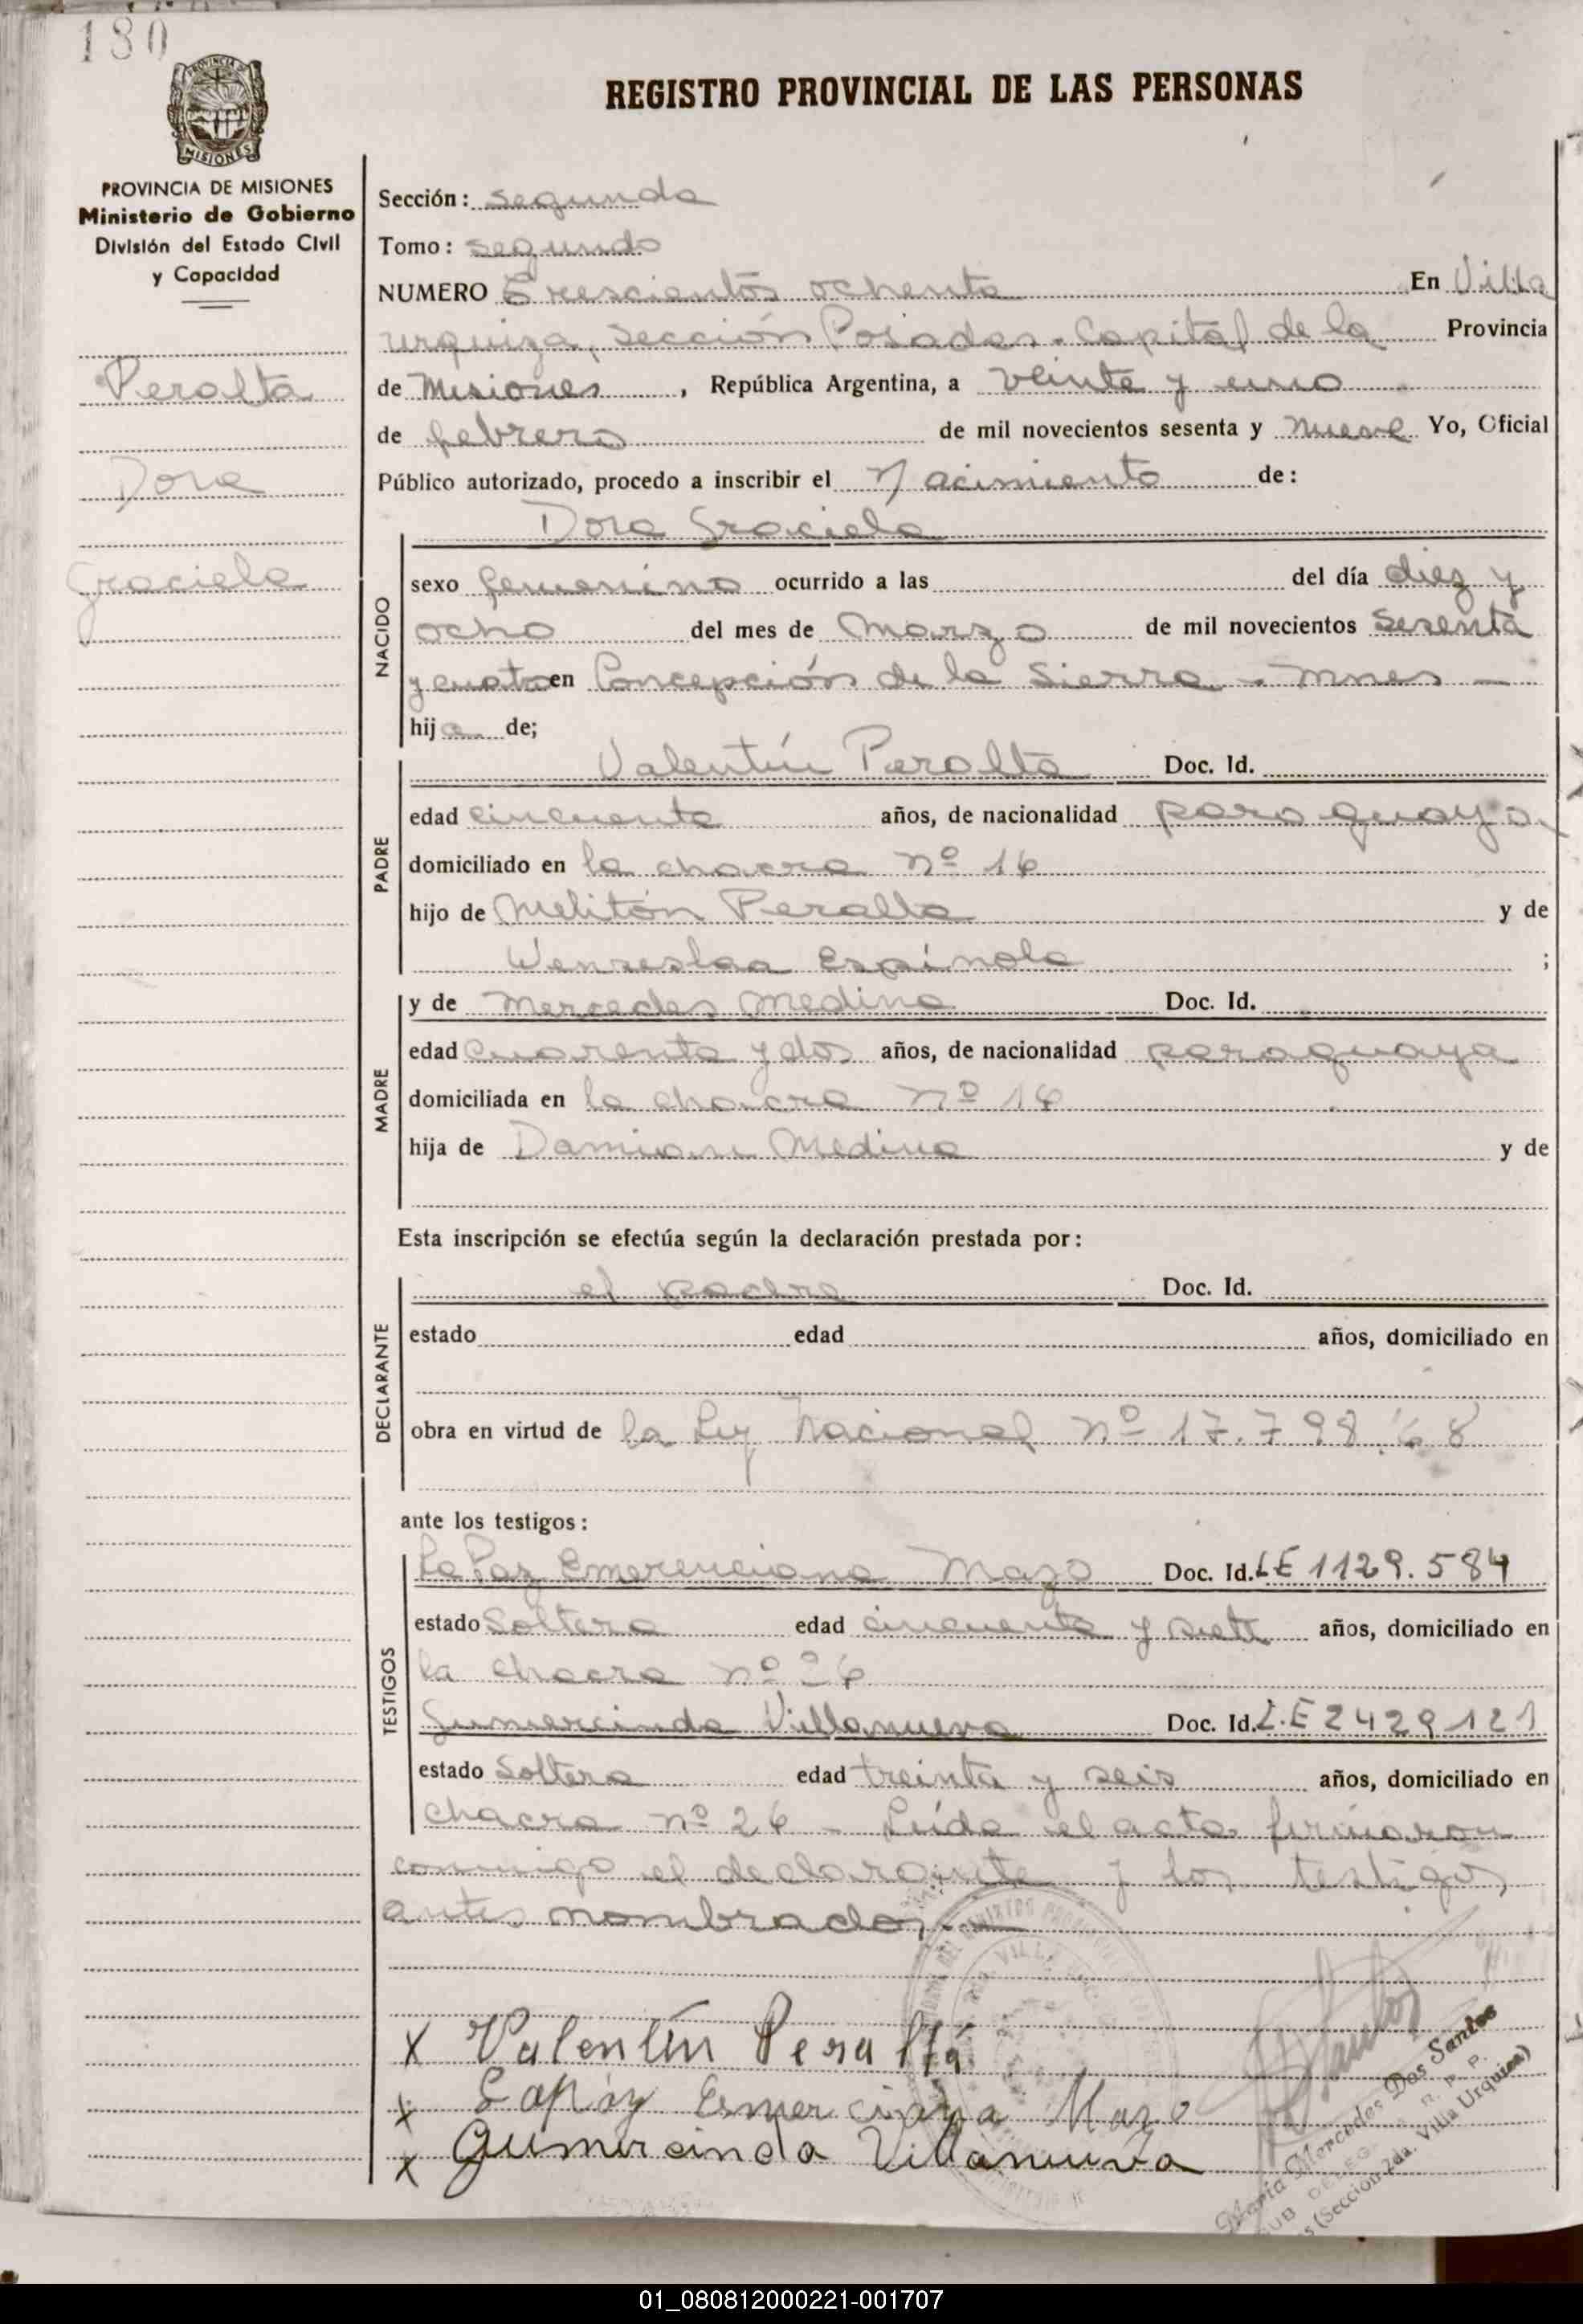 180
REGISTRO PROVINCIAL DE LAS PERSONAS
MISIONES
PROVINCIA DE MISIONES
Ministerio de Gobierno
División del Estado Civil
y Capacidad
Peralta
Dora
Graciela
Sección: segunda
Tomo: segundo
NUMERO Trescientos ochenta En Villa
urquiza, Sección Posadas. Capital de la Provincia
de Misiones, República Argentina, a veinte y uno
de febrero de mil novecientos sesenta y nueve Yo, Oficial
Público autorizado, procedo a inscribir el Nacimiento de:
NACIDO
Dora Graciela
sexo femenino ocurrido a las del día diez y
ocho del mes de Marzo de mil novecientos sesenta
y cuatro en Concepción de la Sierra - Mnes -
hija de;
PADRE
Valentín Peralta Doc. Id.
edad cincuenta años, de nacionalidad paraguaya
domiciliado en la chacra nº 16
hijo de Melitón Peralta y de
Wenseslaa Espínola ;
MADRE
y de Mercedes Medina Doc. Id.
edad cuarenta y dos años, de nacionalidad paraguaya
domiciliada en la chacra nº 16
hija de Damian Medina y de
Esta inscripción se efectúa según la declaración prestada por:
DECLARANTE
el padre Doc. Id.
estado edad años, domiciliado en
obra en virtud de la Ley Nacional nº 17.798.68
ante los testigos:
TESTIGOS
La Paz Emerenciana Mazo Doc. Id. LE 1129.584
estado Soltera edad cincuenta y siete años, domiciliado en
la chacra nº 26
Gumercinda Villanueva Doc. Id. L.E 2429121
estado Soltera edad treinta y seis años, domiciliado en
chacra nº 26 - Leída el acta firmaron
conmigo el declarante y los testigos
antes nombrados.-
x Valentín Peralta
x Lapaz Emerciana Mazo
x Gumercinda Villanueva
Santos
María Mercedes Dos Santos
SUB DELEG. R. P. P.
(Sección 2da. Villa Urquiza)
01_080812000221-001707